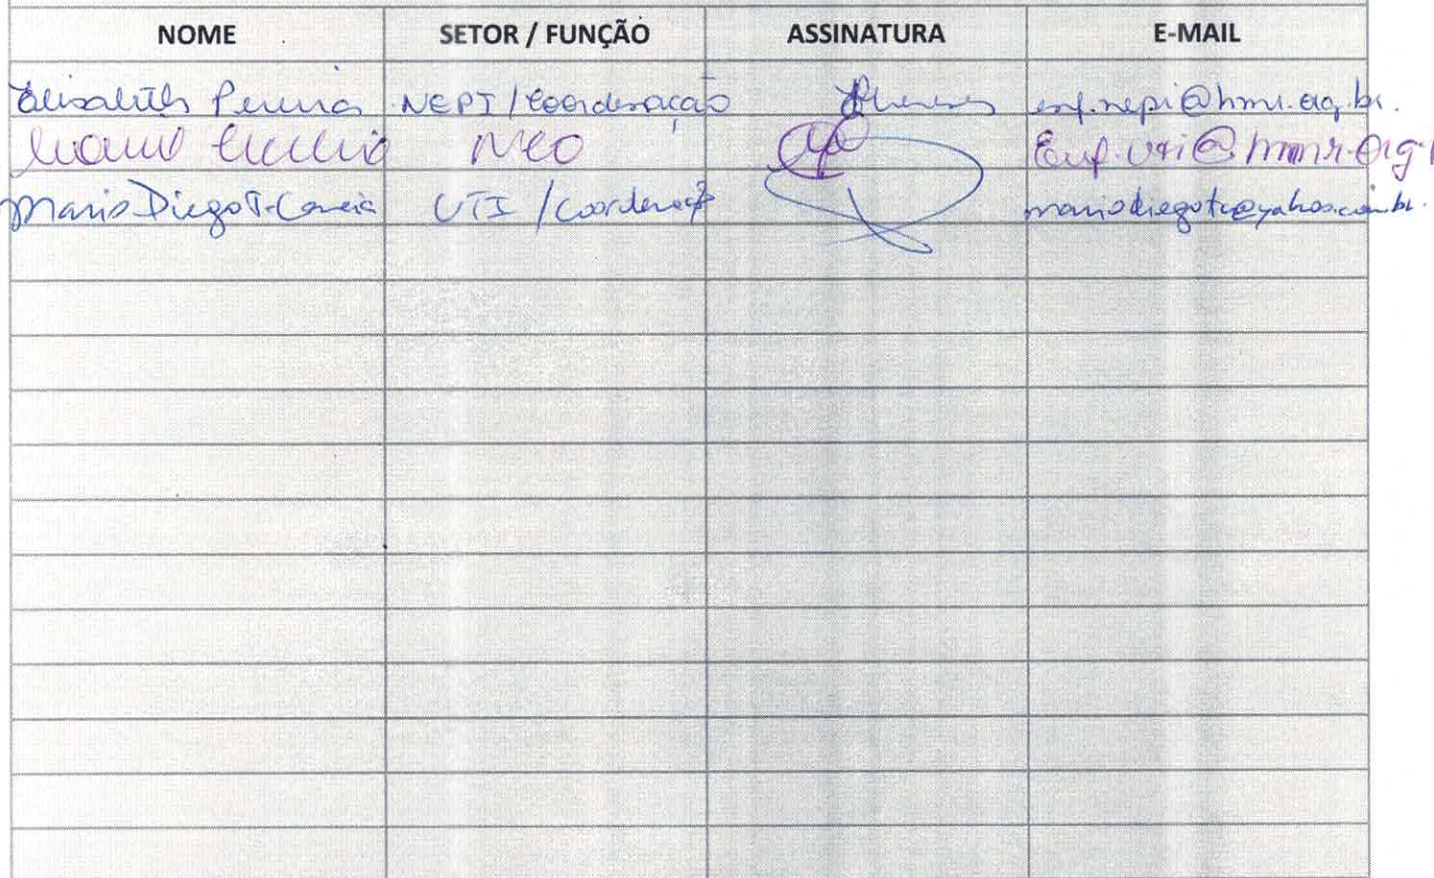 NOME SETOR / FUNÇÃO ASSINATURA E-MAIL
Elisabeth Pereira NEPI / Coordenação enf.nepi@hmr.org.br.
NEO Enf.uti@hmr.org.
Mario Diego T. Correia UTI / Coordenação mariodiegotc@yahoo.com.br.